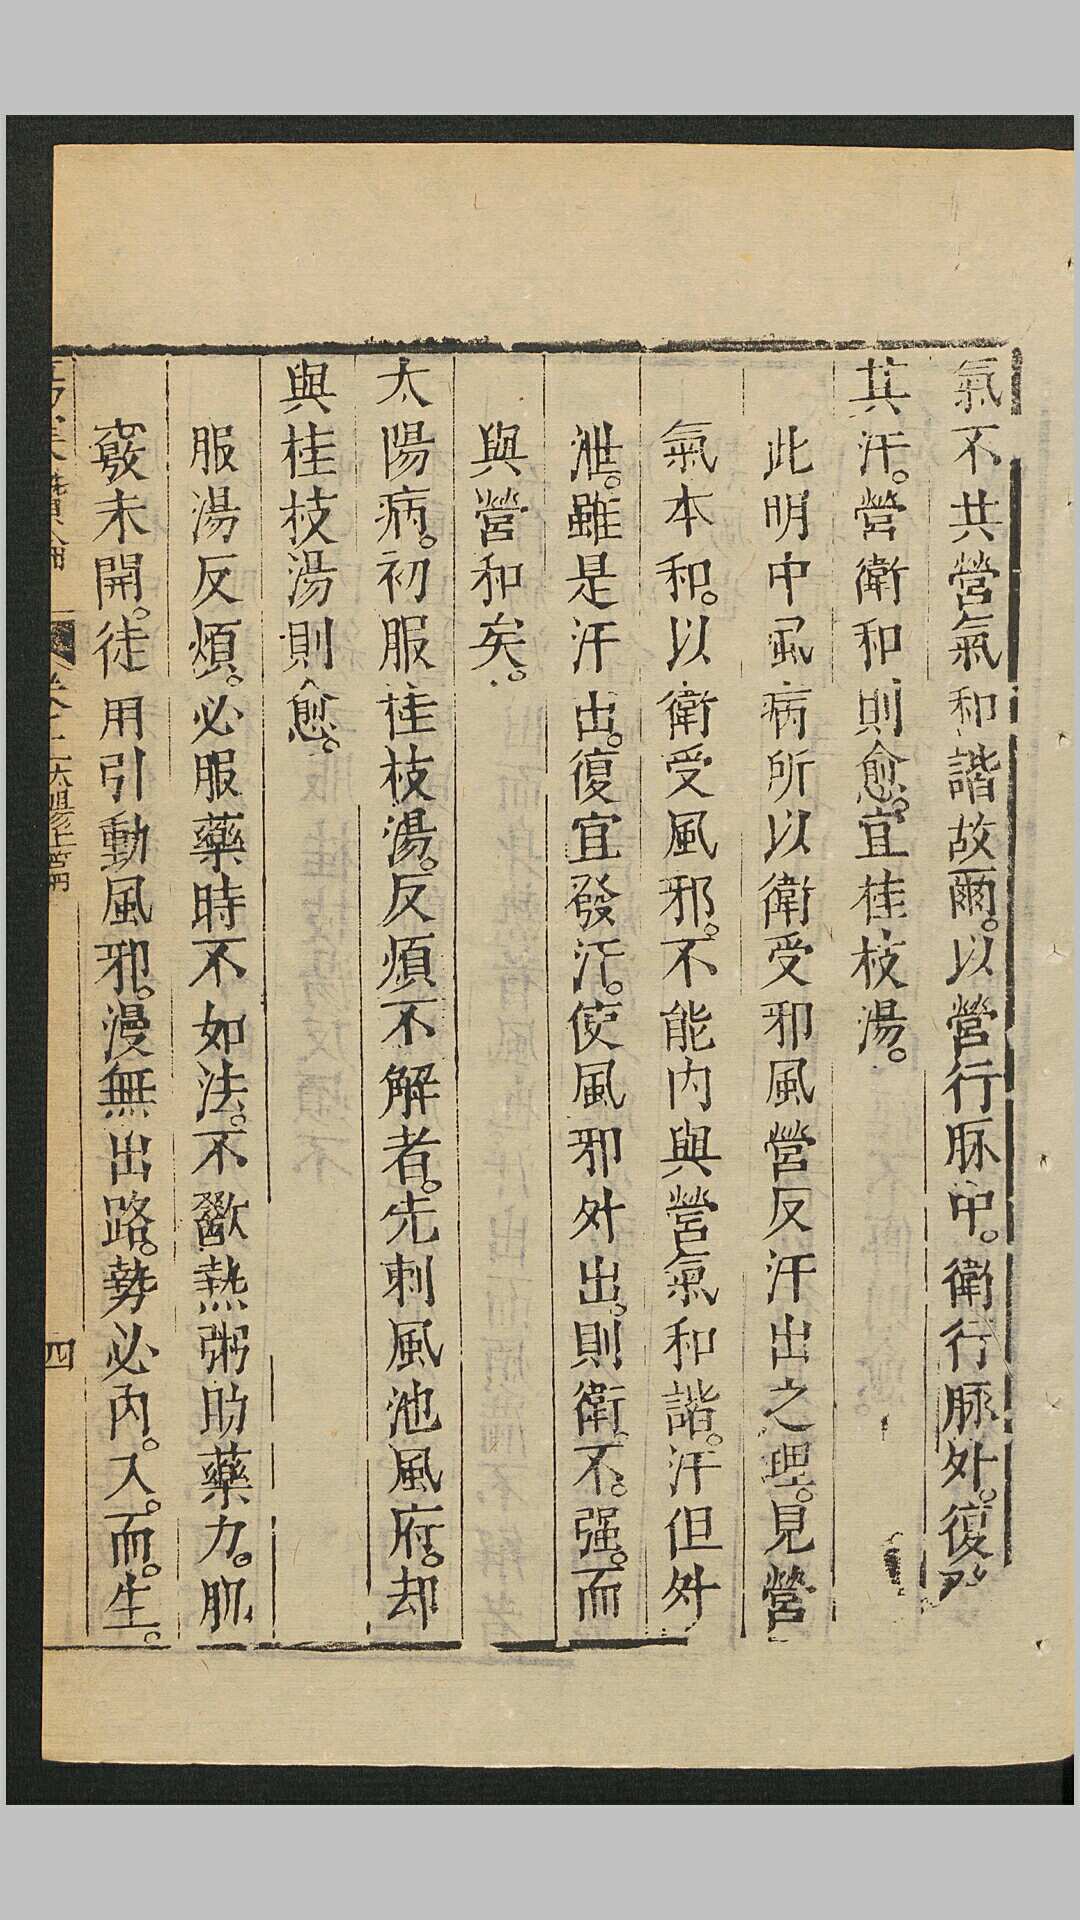 氣不共營氣和諧故爾。以營行脈中。衛行脈外。復發
其汗。營衛和則愈。宜桂枝湯。
此明中風病所以衛受邪風營反汗出之理。見營
氣本和。以衛受風邪。不能內與營氣和諧。汗但外
泄。雖是汗出。復宜發汗。使風邪外出。則衛不。强。而
與營和矣。
太陽病。初服桂枝湯。反煩不解者。先刺風池風府。却
與桂枝湯則愈。
服湯反煩。必服藥時不如法。不歠熱粥助藥力。肌
竅未開。徒用引動風邪。漫無出路。勢必內。入。而。生。
卷二太陽上篇
四